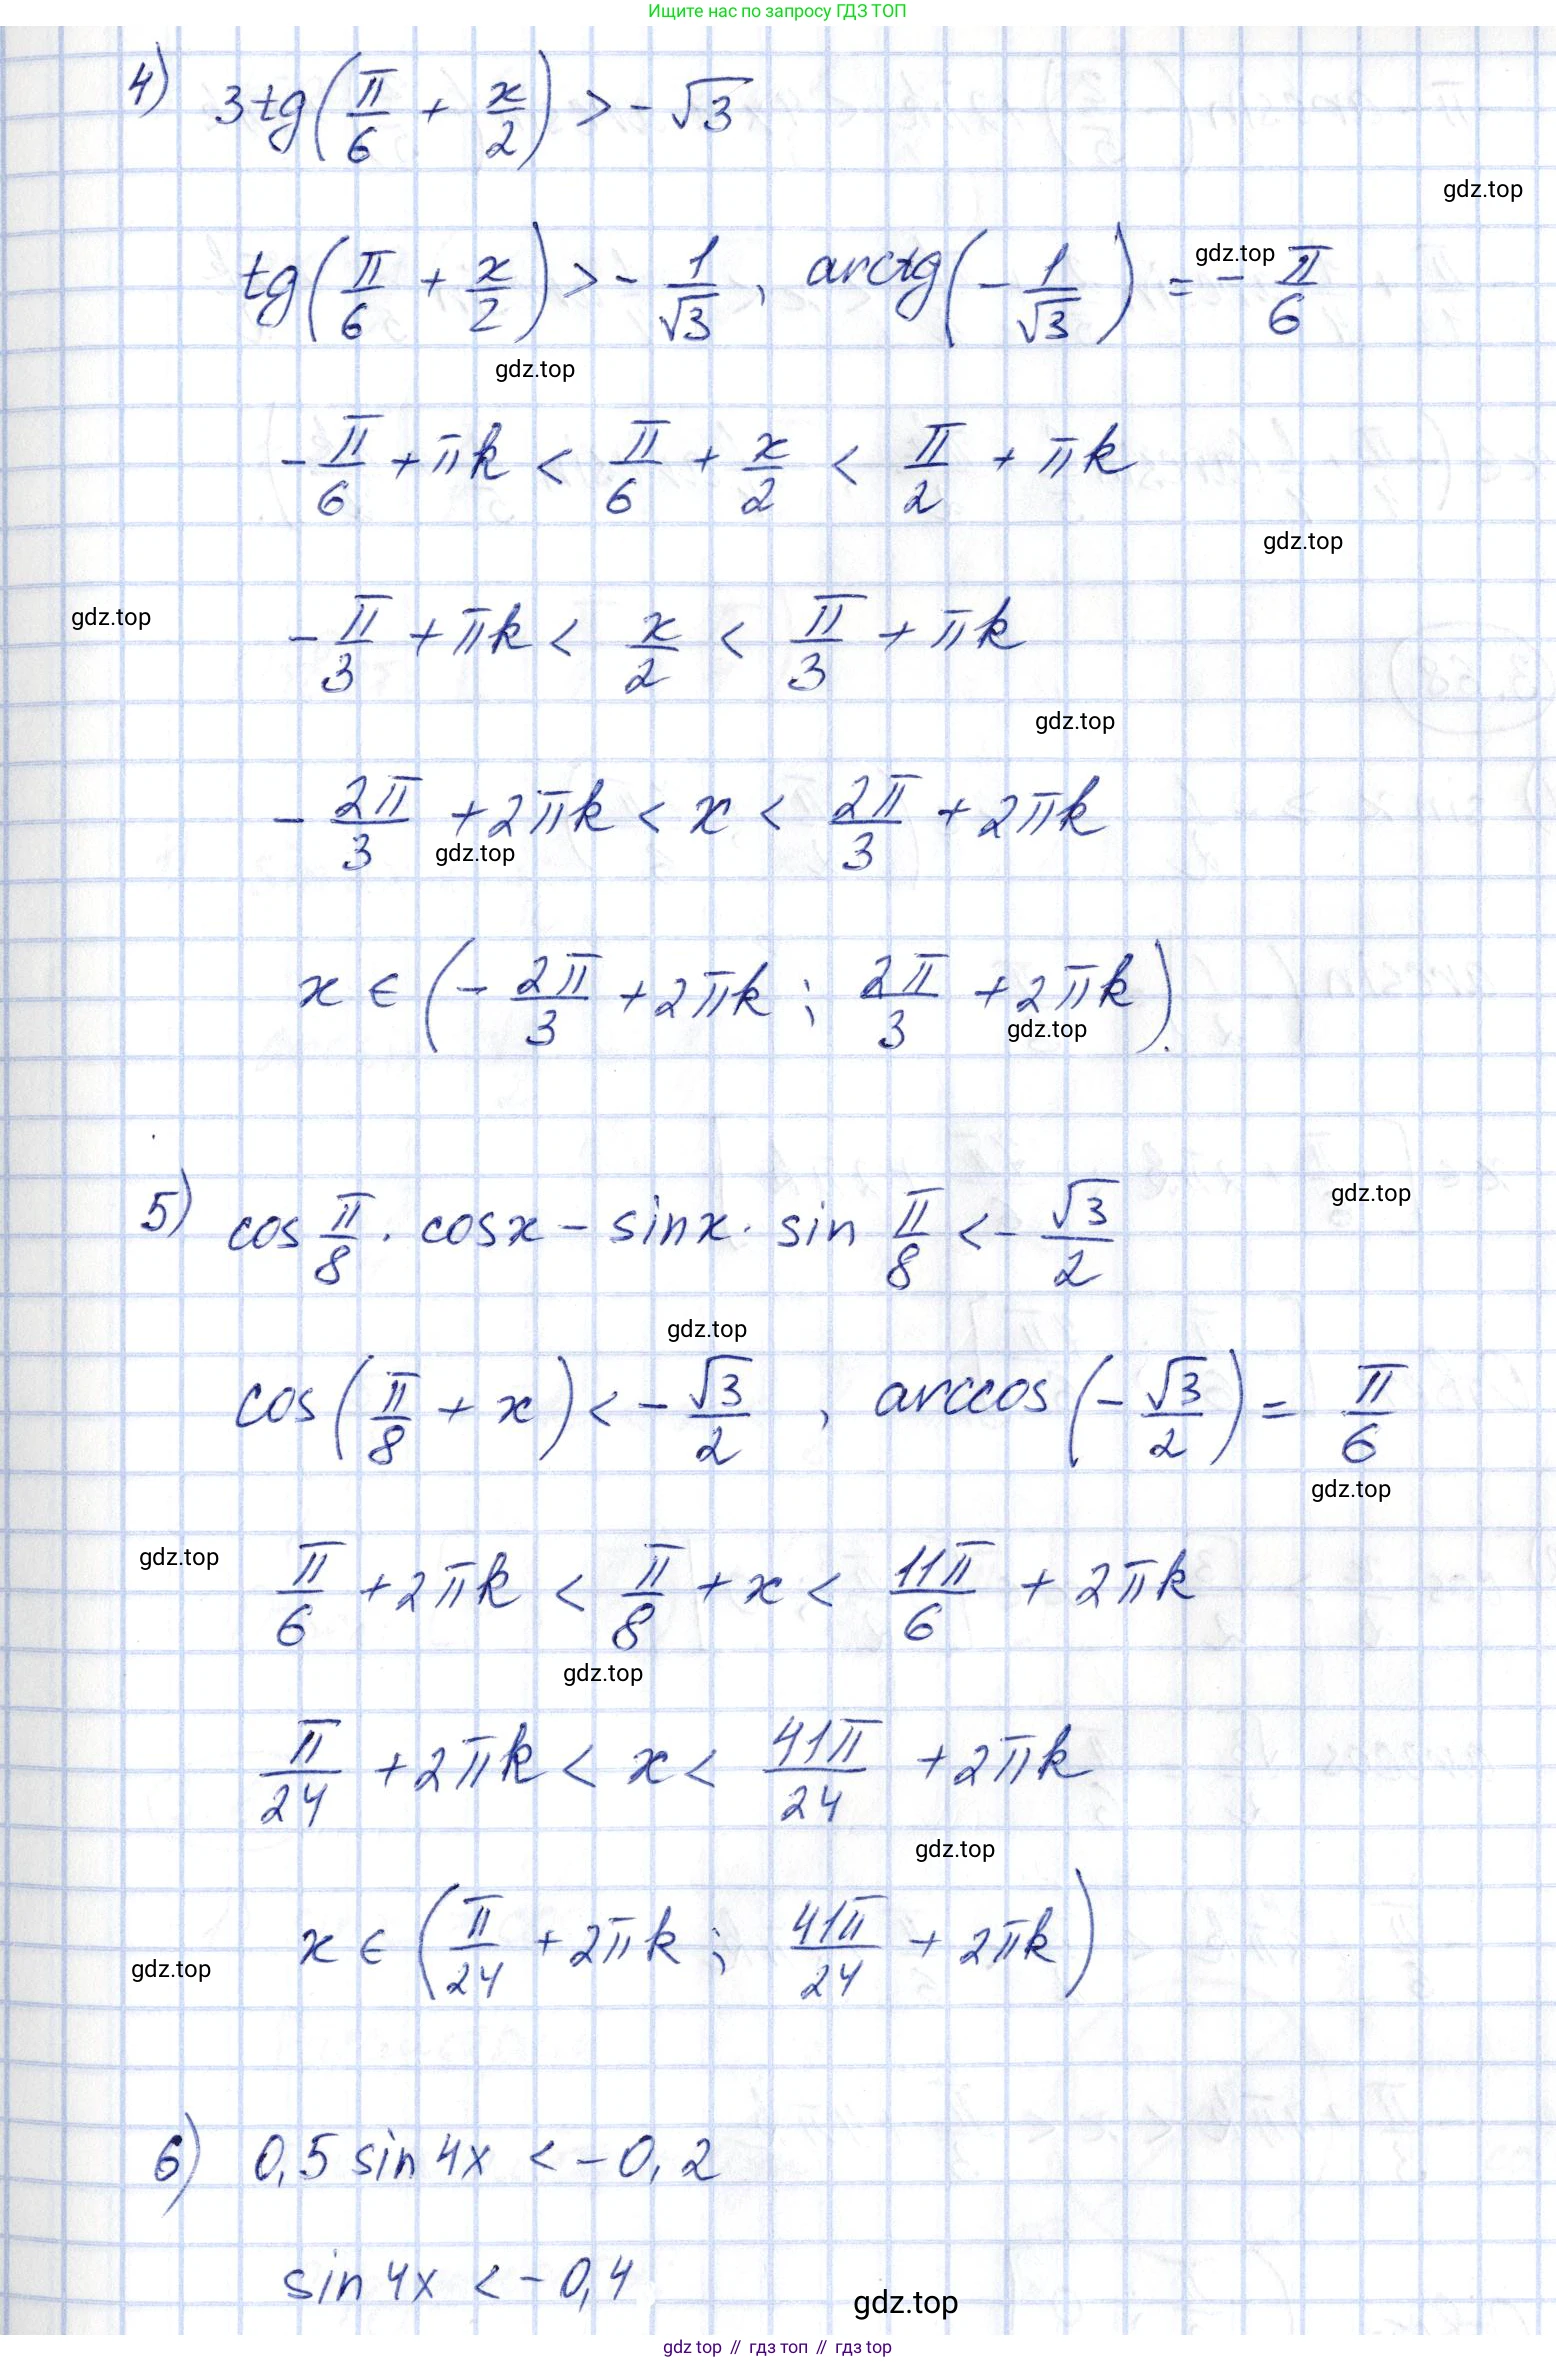 Ищите нас по запросу ГДЗ ТОП
4) 3tg(π/6 + x/2) > -√3
gdz.top
tg(π/6 + x/2) > -1/√3, arctg(-1/√3) = -π/6
gdz.top
gdz.top
-π/6 + πk < π/6 + x/2 < π/2 + πk
gdz.top
gdz.top
-π/3 + πk < x/2 < π/3 + πk
gdz.top
-2π/3 + 2πk < x < 2π/3 + 2πk
gdz.top
x ∈ (-2π/3 + 2πk; 2π/3 + 2πk).
gdz.top
5) cos π/8 · cosx - sinx · sin π/8 < -√3/2
gdz.top
gdz.top
cos(π/8 + x) < -√3/2, arccos(-√3/2) = π/6
gdz.top
gdz.top
π/6 + 2πk < π/8 + x < 11π/6 + 2πk
gdz.top
π/24 + 2πk < x < 41π/24 + 2πk
gdz.top
x ∈ (π/24 + 2πk; 41π/24 + 2πk)
gdz.top
6) 0,5 sin4x < -0,2
sin4x < -0,4
gdz.top
gdz top // гдз топ // гдз top